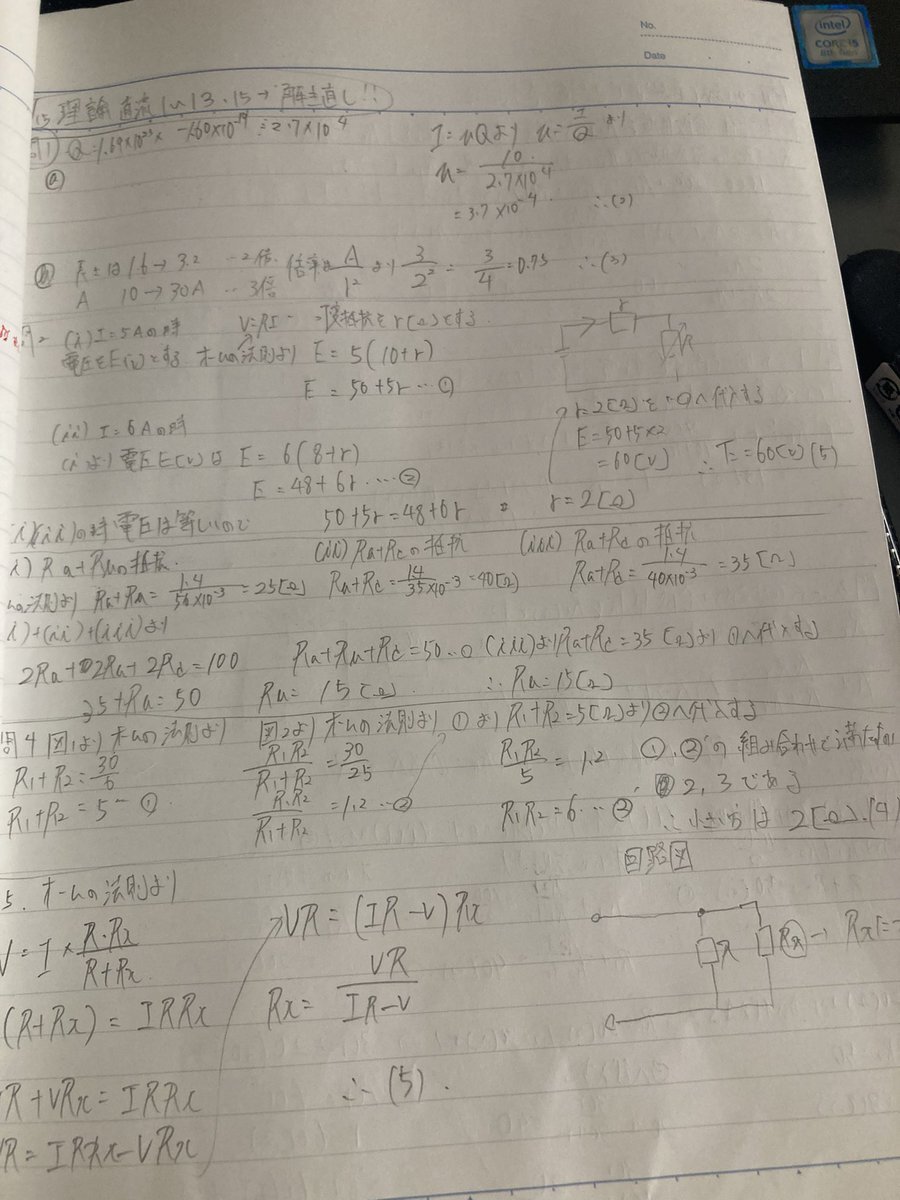 No.
Date
intel
CORE i5
8th Gen
理論 直流 1~13.15→解き直し!!
問1) Q=1.69×10²³× -1.60×10⁻¹⁹ ≒2.7×10⁴
I=uQより u=I/Q より
ⓐ
u=10/2.7×10⁴
=3.7×10⁻⁴ ∴(2)
ⓑ 1.6→3.2 …2倍. 倍率は A/l² より 3/2² = 3/4=0.75 ∴(3)
A 10→30A …3倍
(i) I=5Aの時 V=RI 抵抗をr(Ω)とする
電圧をE(V)とする オームの法則より E=5(10+r)
E=50+5r…①
r
R
(ii) I=6Aの時
(iより電圧E(V)は E=6(8+r)
E=48+6r…②
r=2[Ω]を①へ代入する
E=50+5×2
=60(V) ∴E=60(V)(5)
i)(ii)の時電圧は等しいので 50+5r=48+6r r=2[Ω]
i) Ra+Rbの抵抗. (ii) Ra+Rcの抵抗 (iii) Ra+Rcの抵抗
の法則より Ra+Rb=1.4/56×10⁻³=25[Ω] Ra+Rc=1.4/35×10⁻³=40[Ω] Ra+Rc=1.4/40×10⁻³=35[Ω]
i)+(ii)+(iii)より
2Ra+2Rb+2Rc=100 Ra+Rb+Rc=50…① (iii)よりRa+Rc=35[Ω]より①へ代入する
35+Ra=50 Ra=15[Ω] ∴Ra=15[Ω]
問4 図1よりオームの法則より 図2よりオームの法則より ①より R₁+R₂=5[Ω]より②へ代入する
R₁+R₂=30/6 R₁R₂/R₁+R₂=30/25 R₁R₂/5=1.2 ①,②の組み合わせで満たすのは
R₁+R₂=5…① R₁R₂/R₁+R₂=1.2…② R₁R₂=6…② 2,3である
∴小さい方は2[Ω].(4)
回路図
5. オームの法則より
V=I×R・Rx/R+Rx
VR=(IR-V)Rx
R
Rx
→
(R+Rx)=IRRx
Rx=VR/IR-V
R+VRx=IRRx
∴(5).
R=IRRx-VRx